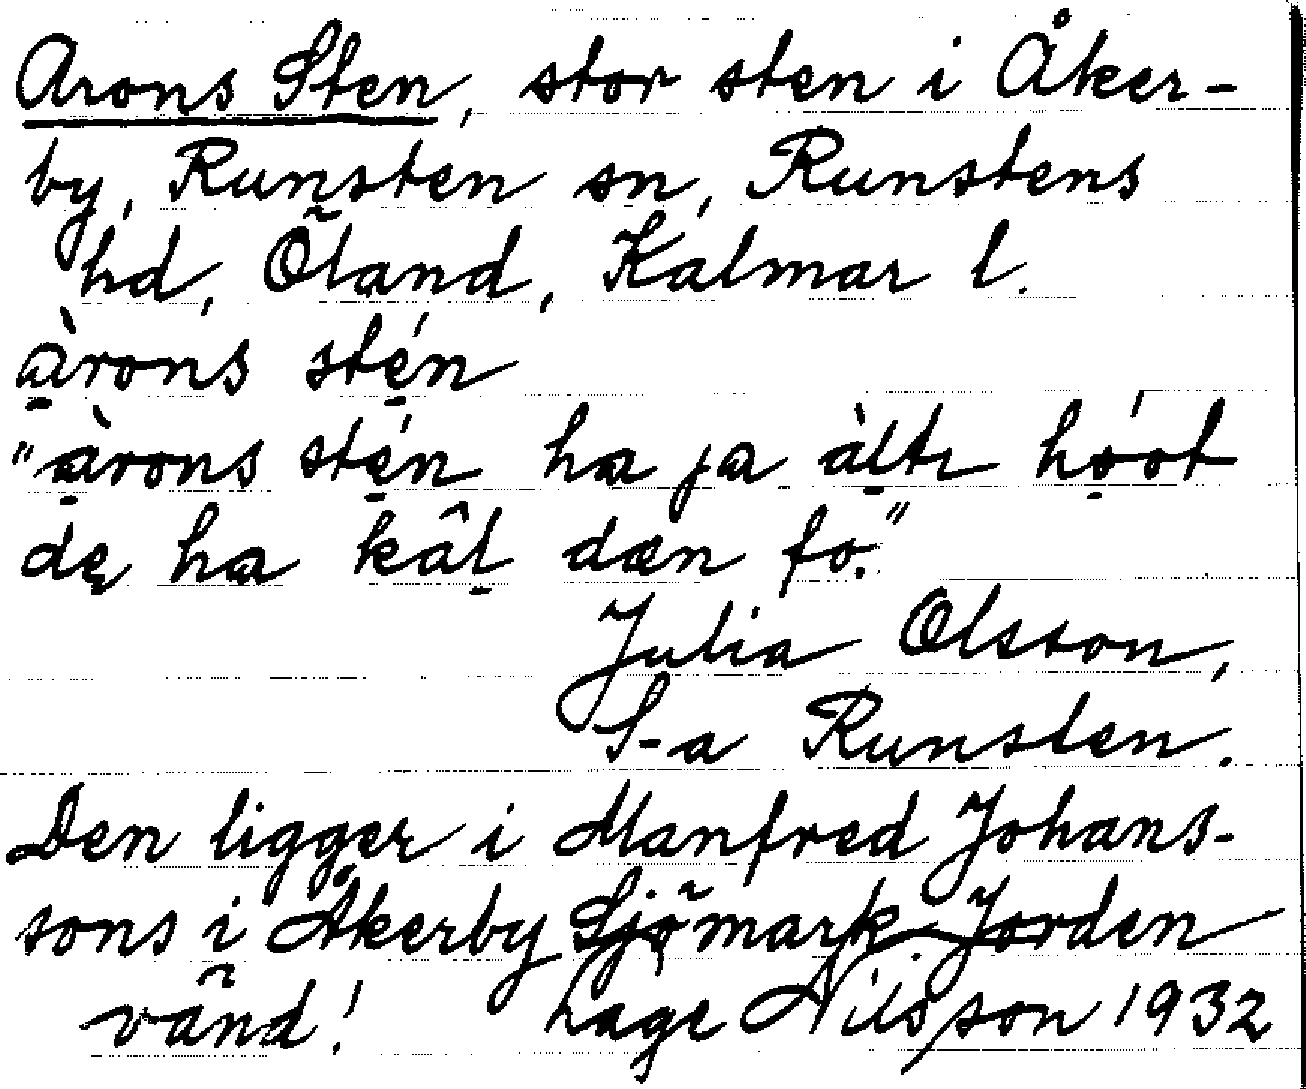 Arons Sten, stor sten i Åker-
by, Runsten sn, Runstens
hd, Öland, Kalmar l.
àrons stén
"àrons stén ha ja àltı hóot
dę ha kâl dæn fo."
Julia Olsson,
S-a Runsten.
Den ligger i Manfred Johans-
sons i Åkerby Sjömark. Jorden
vänd! Lage Nilsson 1932